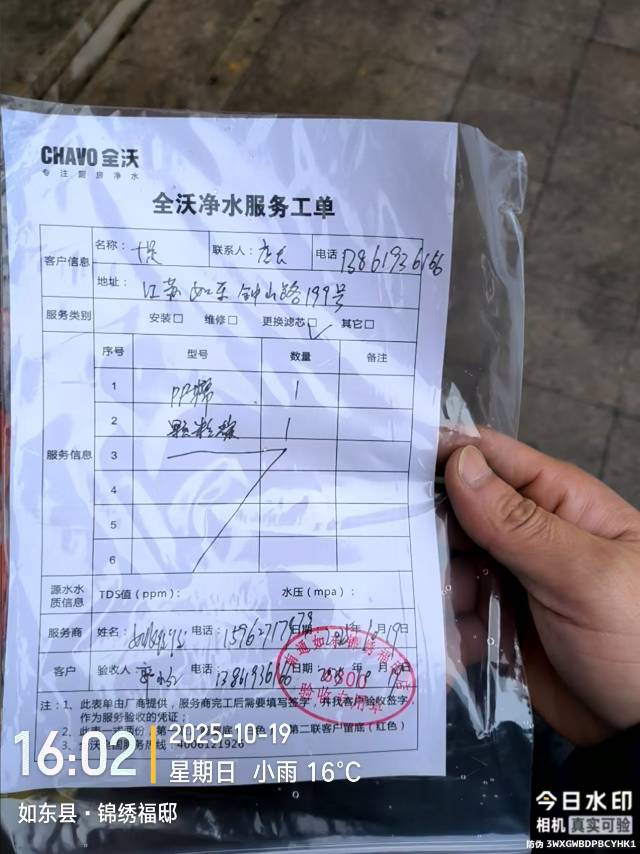 CHAVO 全沃
专注厨房净水
全沃净水服务工单
客户信息 名称： 联系人： 电话 13861936166
地址： 江苏如东钟山路199号
服务类别 安装□ 维修□ 更换滤芯□✓ 其它□
服务信息 序号 型号 数量 备注
1 PP棉 1
2 颗粒碳 1
3
4
5
6
源水水质信息 TDS值（ppm）： 水压（mpa）：
服务商 姓名： 电话： 日期： 年 月19日
客户 验收人 电话： 13861936166 日期 2025年 月19日
注：1、此表单由厂商提供，服务商完工后需要填写签字，并找客户验收签字
作为服务验收的凭证；
2、此表一式两份，第 色 第二联客户留底（红色）
3、全沃全国服务热线：4006121926
16:02
2025-10-19
星期日 小雨 16℃
如东县·锦绣福邸
今日水印
相机 真实可验
防伪 3WXGWBDPBCYHK1